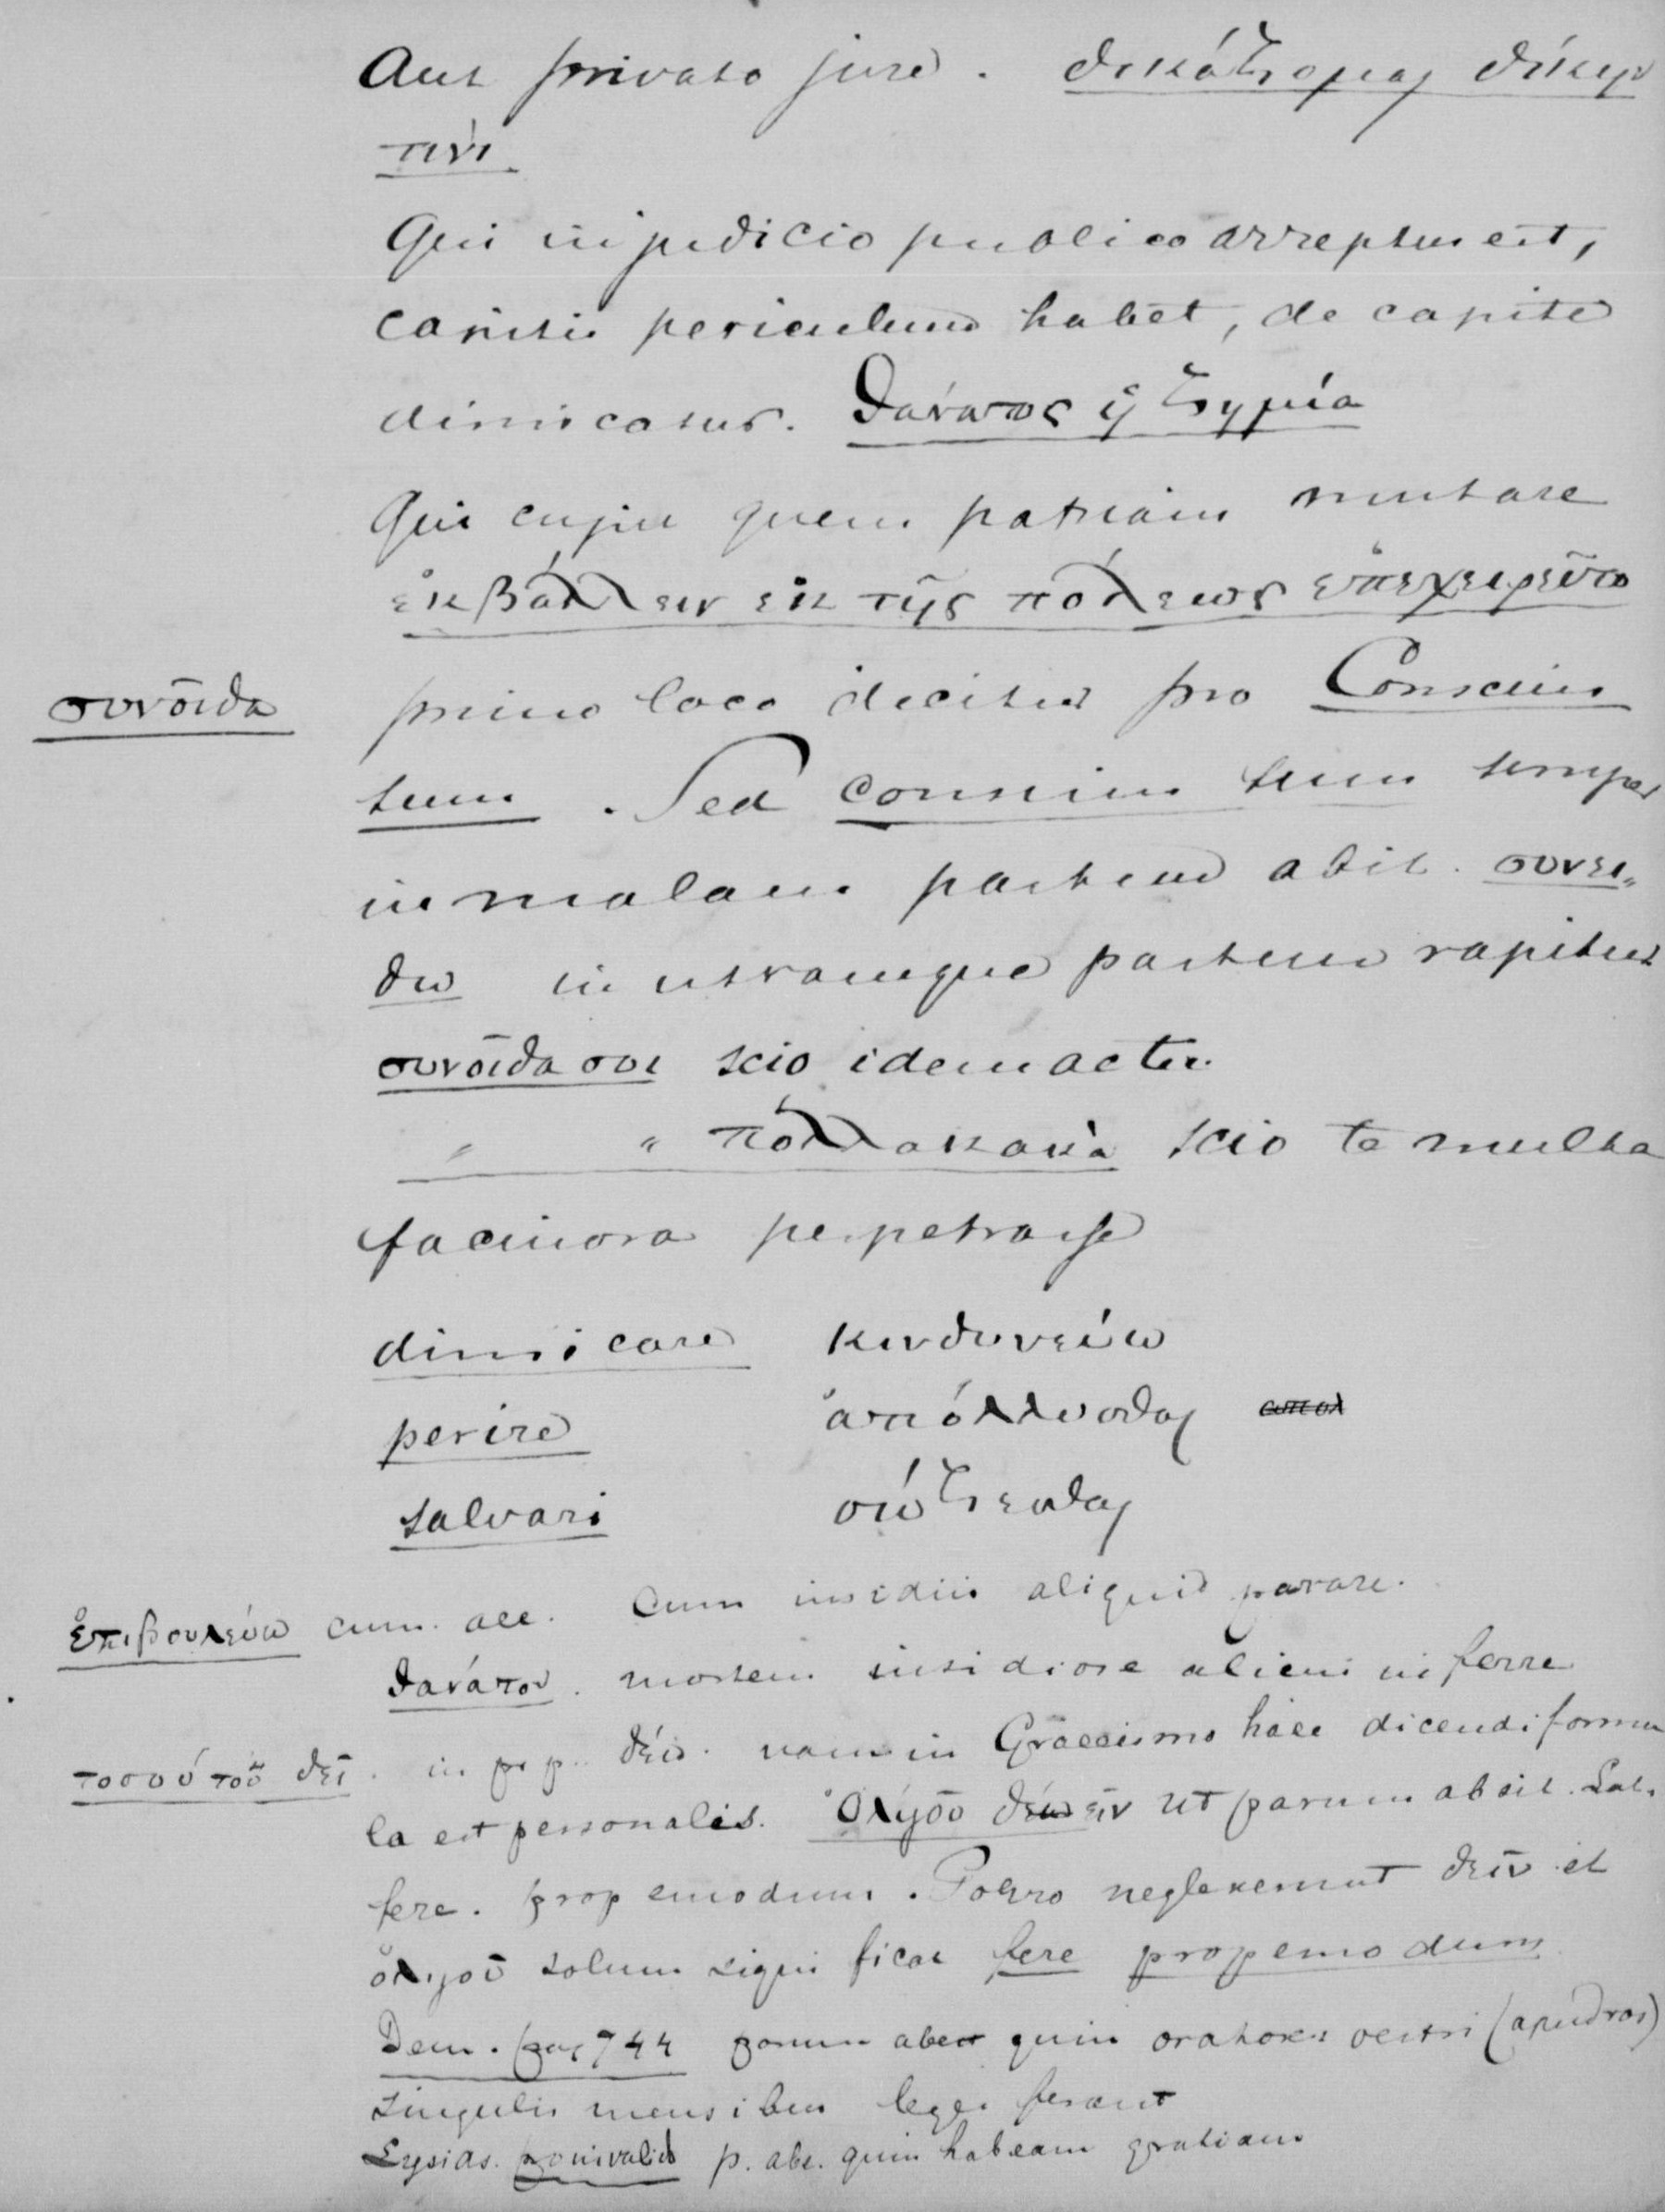 Aut privato jure. δικάζομαι δίκην
τινί
Qui in judicio publico arreptus est,
capitis periculum habet, de capite
dimicatur. θάνατος ἡ ζημία
Qui cujus quem patriam mutare
ἐκβάλλειν ἐκ τῆς πόλεως ἐπεχειρεῖτο
σύνοιδα primo loco dicitur pro Conscius
sum. Sed conscius sum semper
in malam partem abit. συνει„
δω in utramque partem rapitur
συνοῖδα σοι scio idem acter
„ „ πόλλα κακὰ scio te multa
facinora perpetrasse
dimicare κινδυνεύω
perire ἀπόλλυσθαι απολ
salvari σώζεσθαι
ἐπιβουλεύω cum. acc. Cum insidiis aliquid parare.
θανάτον. mortem insidiose alicui inferre
τοσούτου δεῖ. in δέω. nam in Graecismo haec dicendi formu
la est personalis. Ὀλίγου δέω εῖν ut parum absit. Lat.
fere. propemodum. Porro neglexerunt δεῖν et
ὀλίγου solum significat fere propemodum
Dem. pag 744 parum abest quin oratores vestri (apud vos)
singulis mensibus leges ferant
Lysias. pro invalid p. abs. quin habeam gratiam